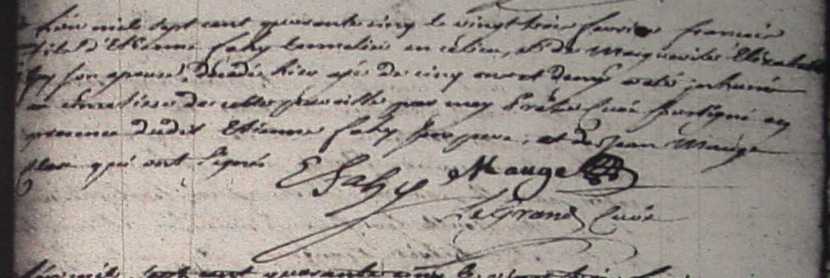 L'an mile sept cent quarante cinq le vingt trois fevrier francois
fils d'Etienne Fahy et de Marguerite Elizabeth
son epouse, decedé hier agé de cinq ans et demy a eté inhumé
au cimetiere de cette paroisse par moy Prêtre Curé soussigné en
presence dudit Etienne Fahy son pere, et de Jean Mauge
qui ont signés
E Fahy Mauge
LeGrand Curé
mil sept cent quarante cinq le